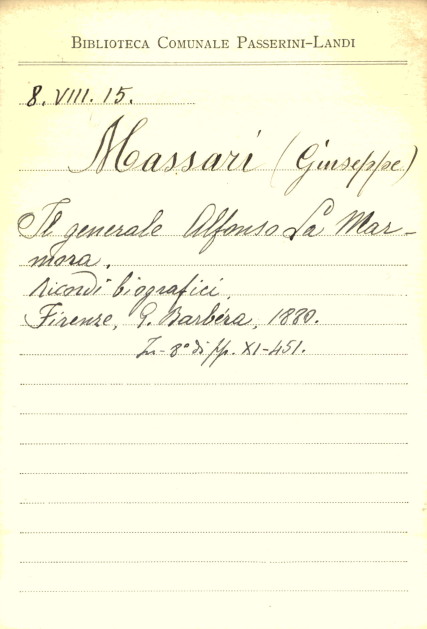 BIBLIOTECA COMUNALE PASSERINI-LANDI
8. VIII. 15.
Massari (Giuseppe)
Il generale Alfonso La Mar-
mora.
ricordi biografici.
Firenze, G. Barbéra, 1880.
In-8° di pp. XI-451.